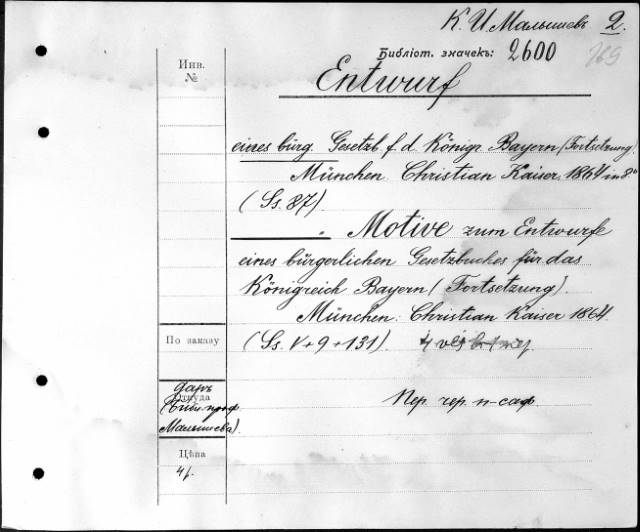 К. И. Малышевъ 2.
Библіот. значекъ: 2600
Инв.
№
Entwurf
eines bürg. Gesetzb. f. d. Königr. Bayern (Fortsetzung)
München. Christian Kaiser. 1864 in 8°
(Ss. 87).
" Motive zum Entwurfe
eines bürgerlichen Gesetzbuches für das
Königreich Bayern (Fortsetzung).
München: Christian Kaiser 1864.
По заказу
(Ss. V+9+131).
Откуда
даръ
проф.
Малышева).
Пер. чер. п-саф.
Цѣна
4 р.